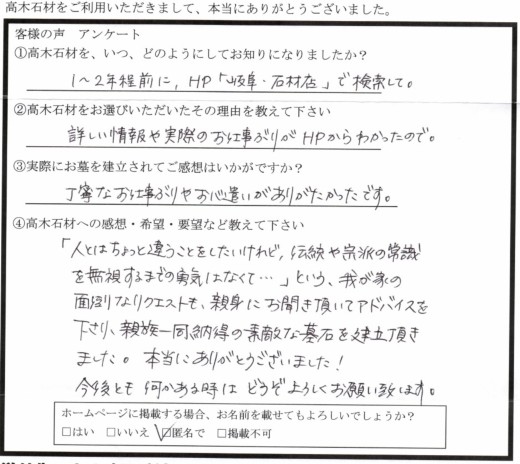 高木石材をご利用いただきまして、本当にありがとうございました。
客様の声 アンケート
①高木石材を、いつ、どのようにしてお知りになりましたか？
1～2年程前に，HP「岐阜・石材店」で検索して。
②高木石材をお選びいただいたその理由を教えて下さい
詳しい情報や実際のお仕事ぶりがHPからわかったので。
③実際にお墓を建立されてご感想はいかがですか？
丁寧なお仕事ぶりやお心遣いがありがたかったです。
④高木石材への感想・希望・要望など教えて下さい
「人とはちょっと違うことをしたいけれど，伝統や宗派の常識
を無視するまでの勇気はなくて…」という、我が家の
面倒なリクエストも、親身にお聞き頂いてアドバイスを
下さり、親族一同納得の素敵な墓石を建立頂き
ました。本当にありがとうございました！
今後とも何かある時はどうぞよろしくお願い致します。
ホームページに掲載する場合、お名前を載せてもよろしいでしょうか？
□はい □いいえ ☑匿名で □掲載不可